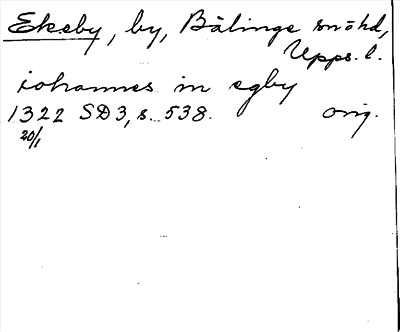 Ekeby, by, Bälinge sn o hd,
Upps. l.
iohannes in egby
1322 SD3, s. 538. orig.
20/1